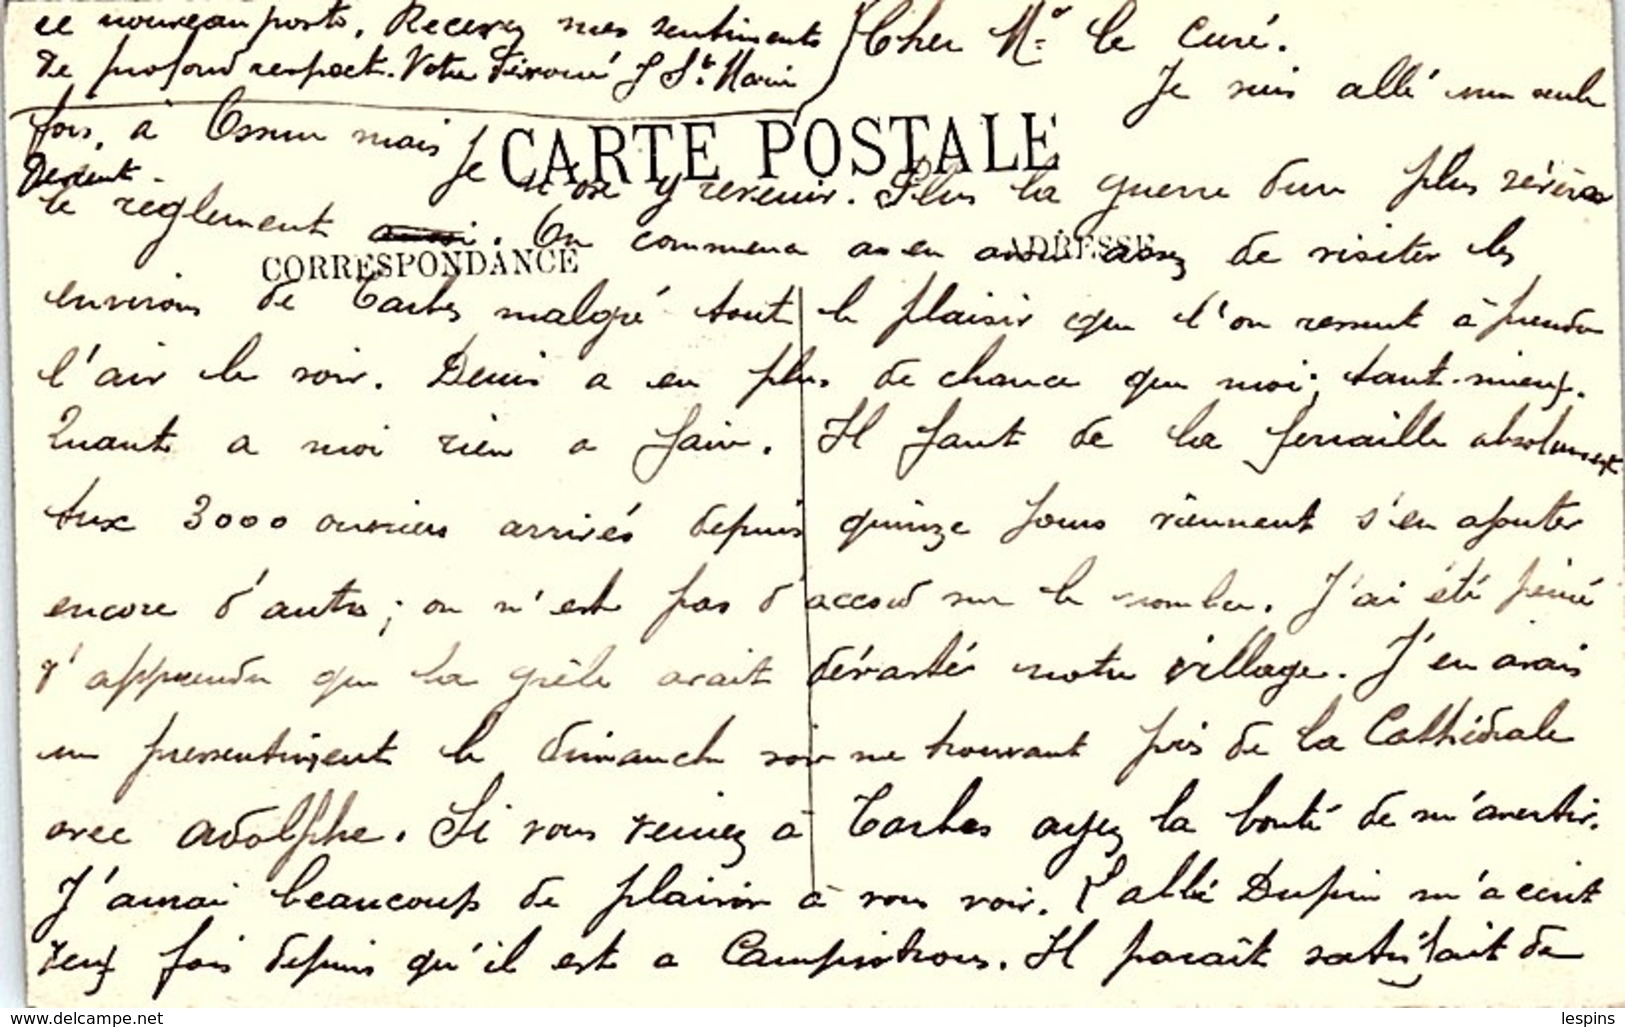 Cher Mr le Curé.
Je suis allé une seule
fois, à Ossun mais je n'ose y revenir. Plus la guerre dure plus sévère
devient
le reglement. On commence assez de visiter les
environs de Tarbes malgré tout le plaisir que l'on ressent à prendre
l'air le soir. Denis a eu plus de chance que moi; tant-mieux.
Quant a moi rien a faire. Il faut de la ferraille absolument
Aux 3000 ouvriers arrivés depuis quinze jours viennent s'en ajouter
encore d'autres; on n'est pas d'accord sur le nombre. J'ai été peiné
d'apprendre que la grêle avait dévasté notre village. J'en avais
un pressentiment le dimanche soir me trouvant près de la Cathédrale
avec Adolphe. Si vous veniez à Tarbes ayez la bonté de m'avertir.
J'aurai beaucoup de plaisir à vous voir. L'abbé Dupin m'a écrit
deux fois depuis qu'il est a Campistrous. Il paraît satisfait de
ce nouveau poste. Recevez mes sentiments
de profond respect. Votre dévoué J St Marin
CARTE POSTALE
CORRESPONDANCE
ADRESSE
www.delcampe.net
lespins